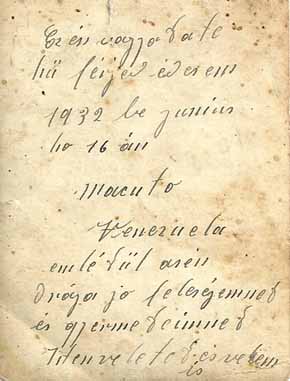 Ez én vagyok a te
hű férjed édesem
1932 be junius
ho 16 án
Macuto
Venezuela
emlékül a
drága jo feleségemnek
és gyermekeimnek
Isten veletek és velem
is